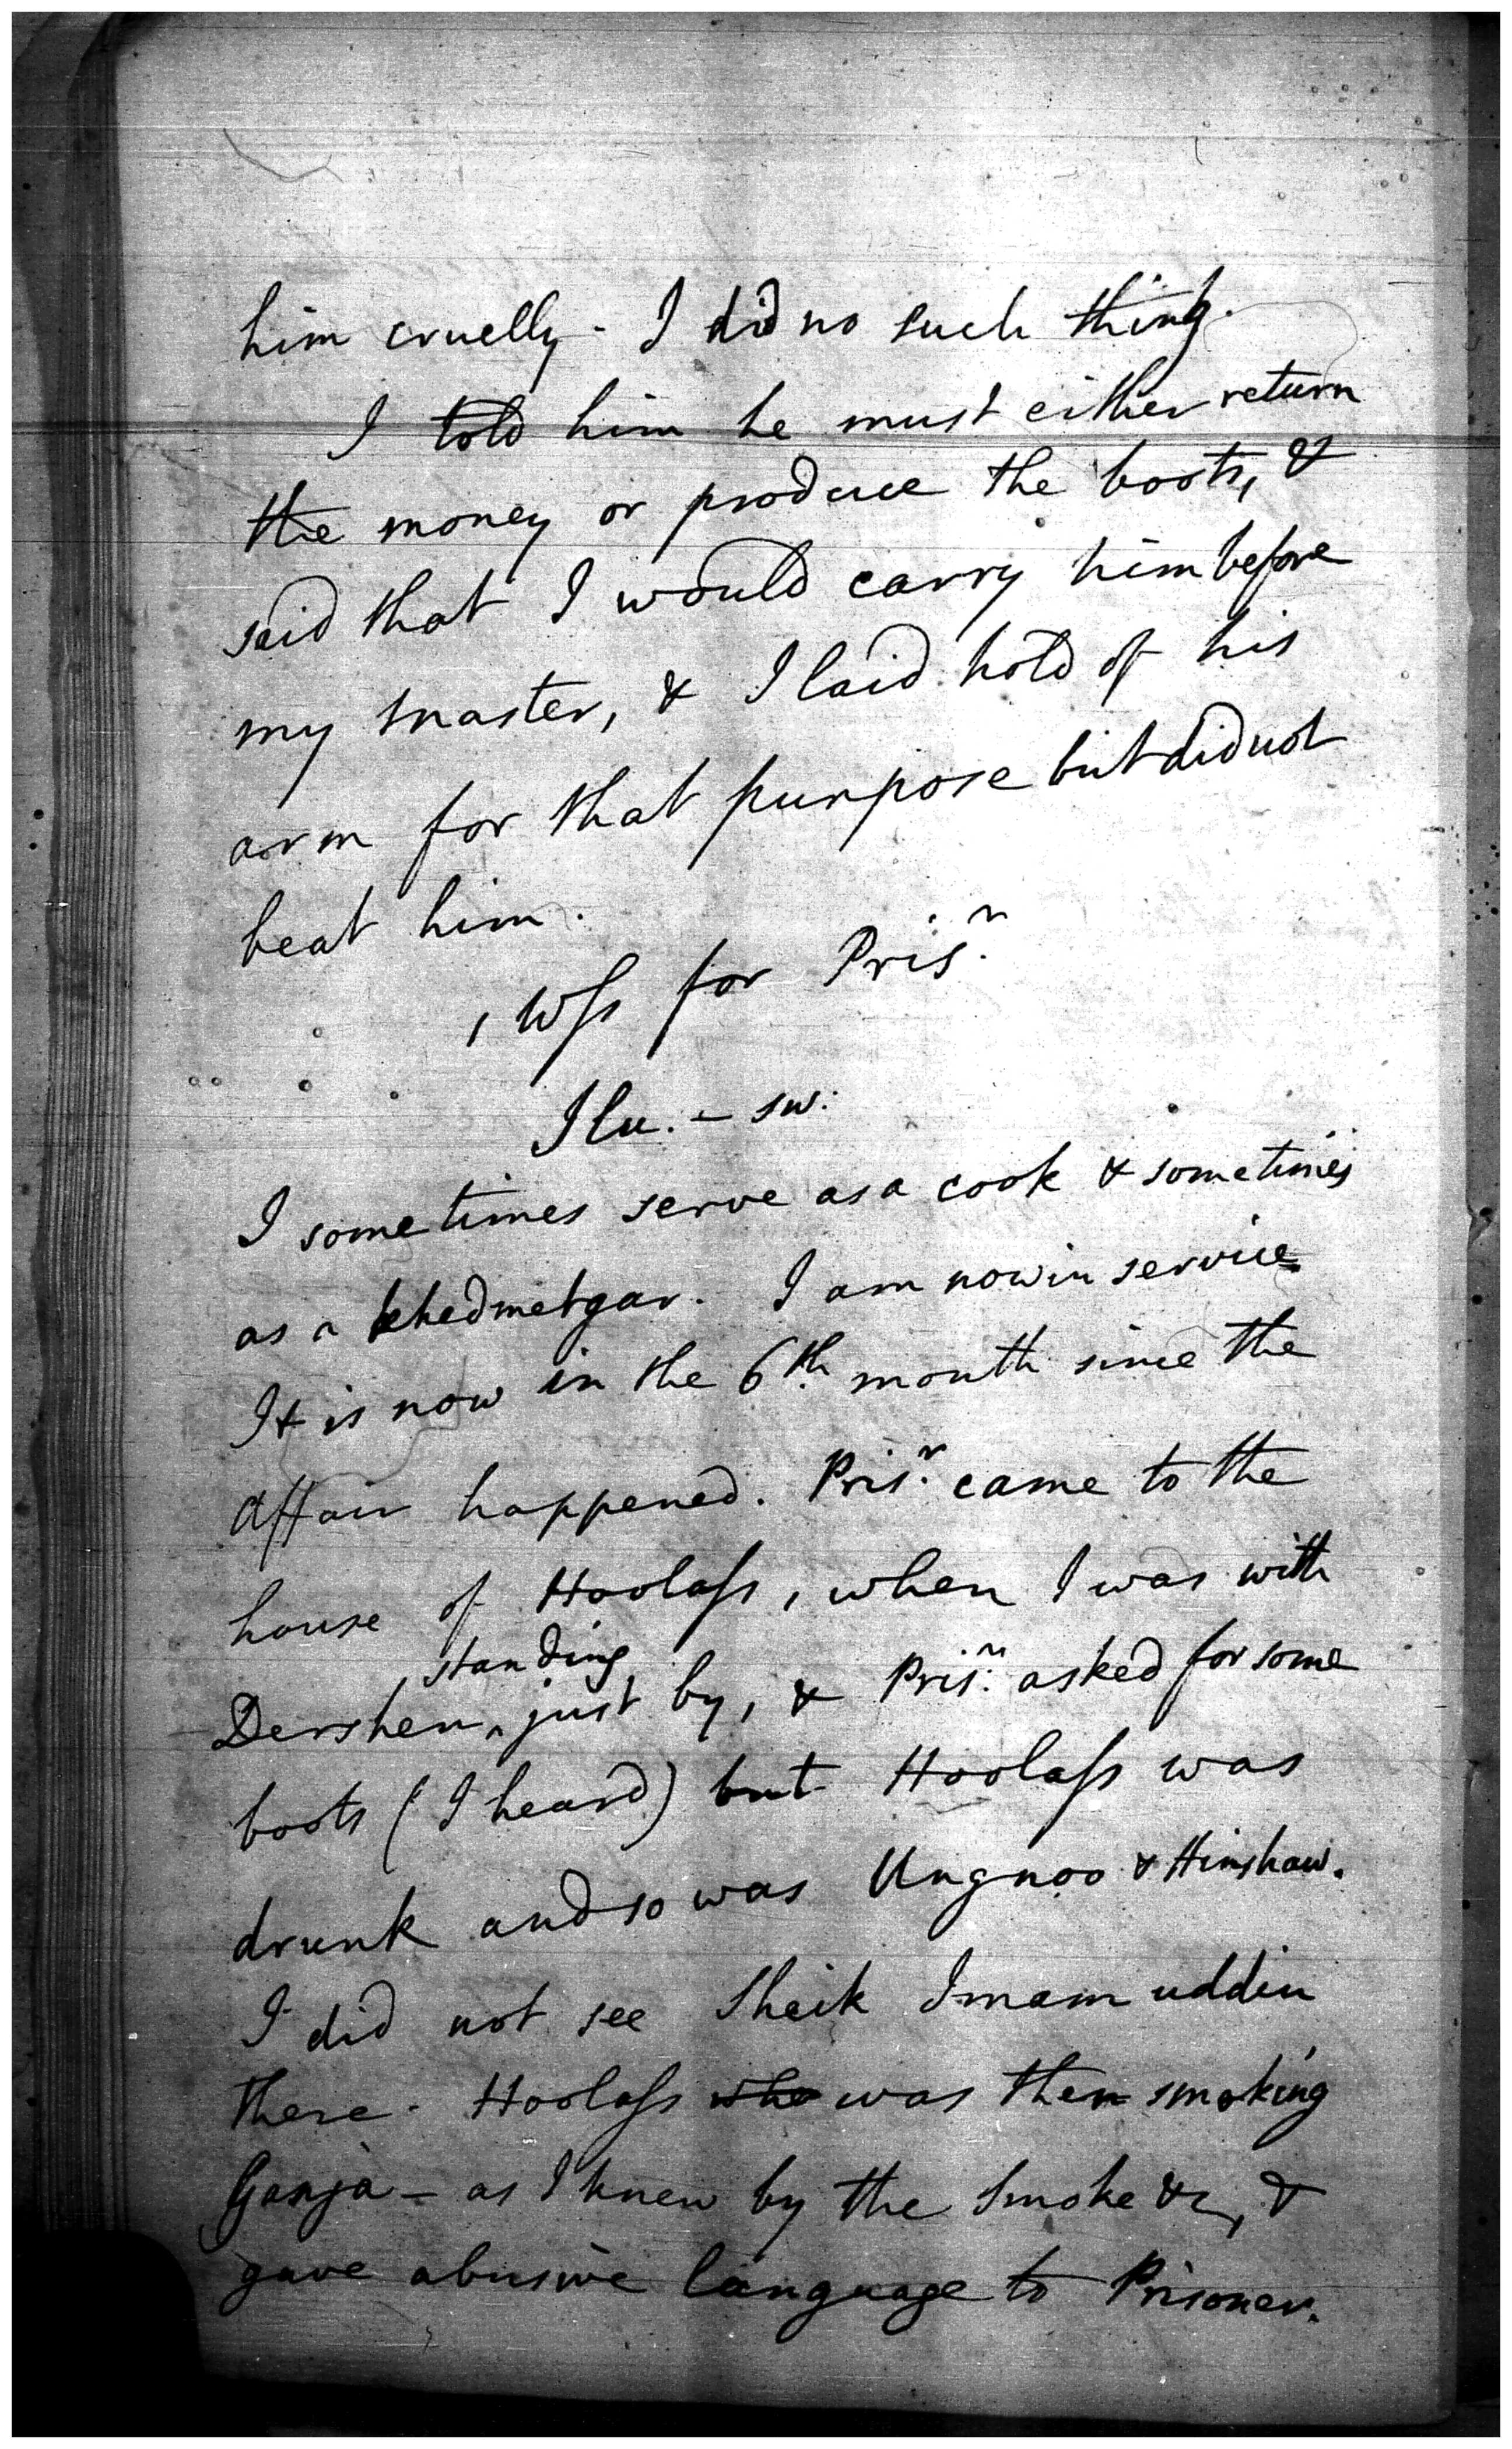 him cruelly - I did no such thing.
I told him he must either return
the money or produce the boots, &
said that I would carry him before
my master, & I laid hold of his
arm for that purpose but did not
beat him.
1 Wſs for Pris.r
Ilu. - sw.
I sometimes serve as a cook & sometimes
as a khedmetgar. I am now in service
It is now in the 6th month since the
affair happened. Pris.r came to the
house of Hoolaſs, when I was with
standing
Dershen ^ just by, & Pris.r asked for some
boots (I heard) but Hoolaſs was
drunk and so was Ungnoo & Hinshaw.
I did not see Sheik Imam uddin
there. Hoolaſs who was then smoking
Ganja - as I knew by the smoke &c, &
gave abusive language to Prisoner.